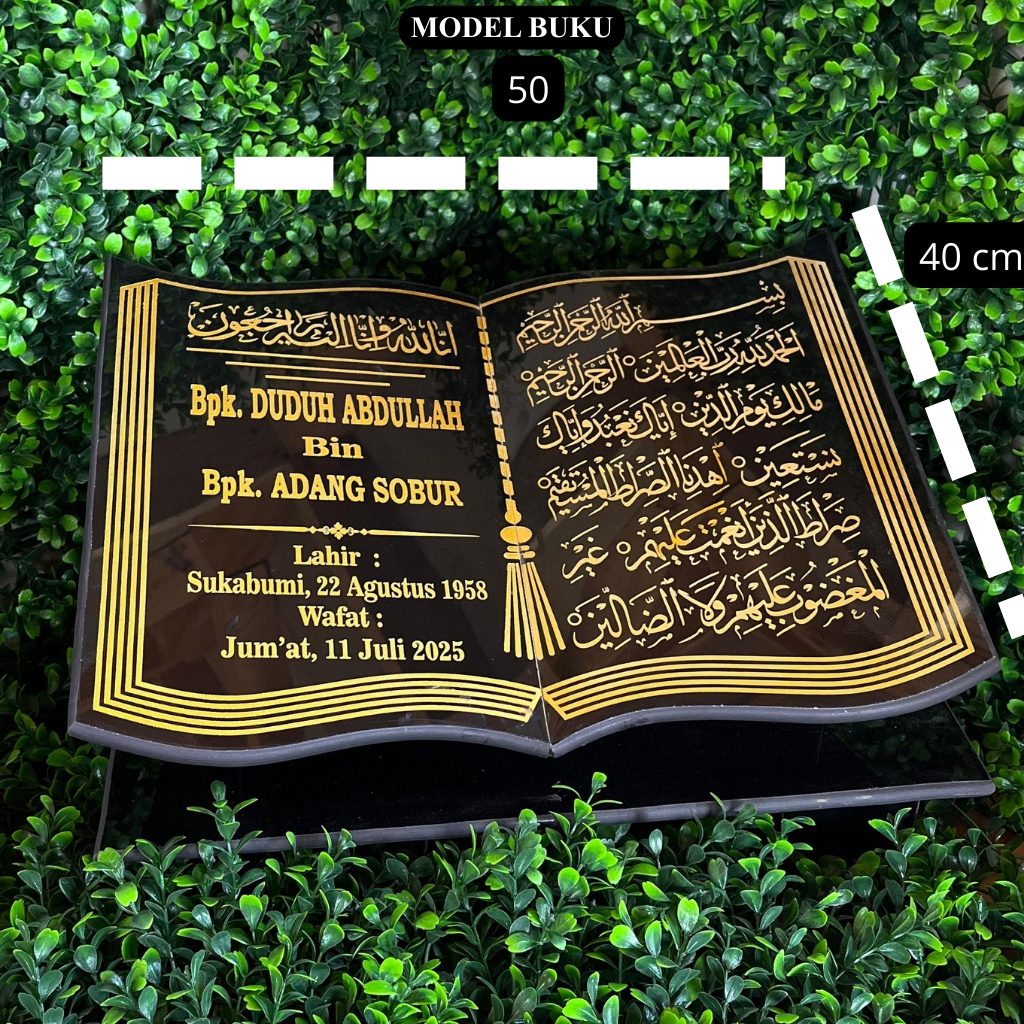 MODEL BUKU
50
40 cm
انا لله وانا اليه راجعون
Bpk. DUDUH ABDULLAH
Bin
Bpk. ADANG SOBUR
Lahir :
Sukabumi, 22 Agustus 1958
Wafat :
Jum’at, 11 Juli 2025
بسم الله الرحمن الرحيم
الحمد لله رب العالمين الرحمن الرحيم
مالك يوم الدين إياك نعبد وإياك
نستعين اهدنا الصراط المستقيم
صراط الذين أنعمت عليهم غير
المغضوب عليهم ولا الضالين